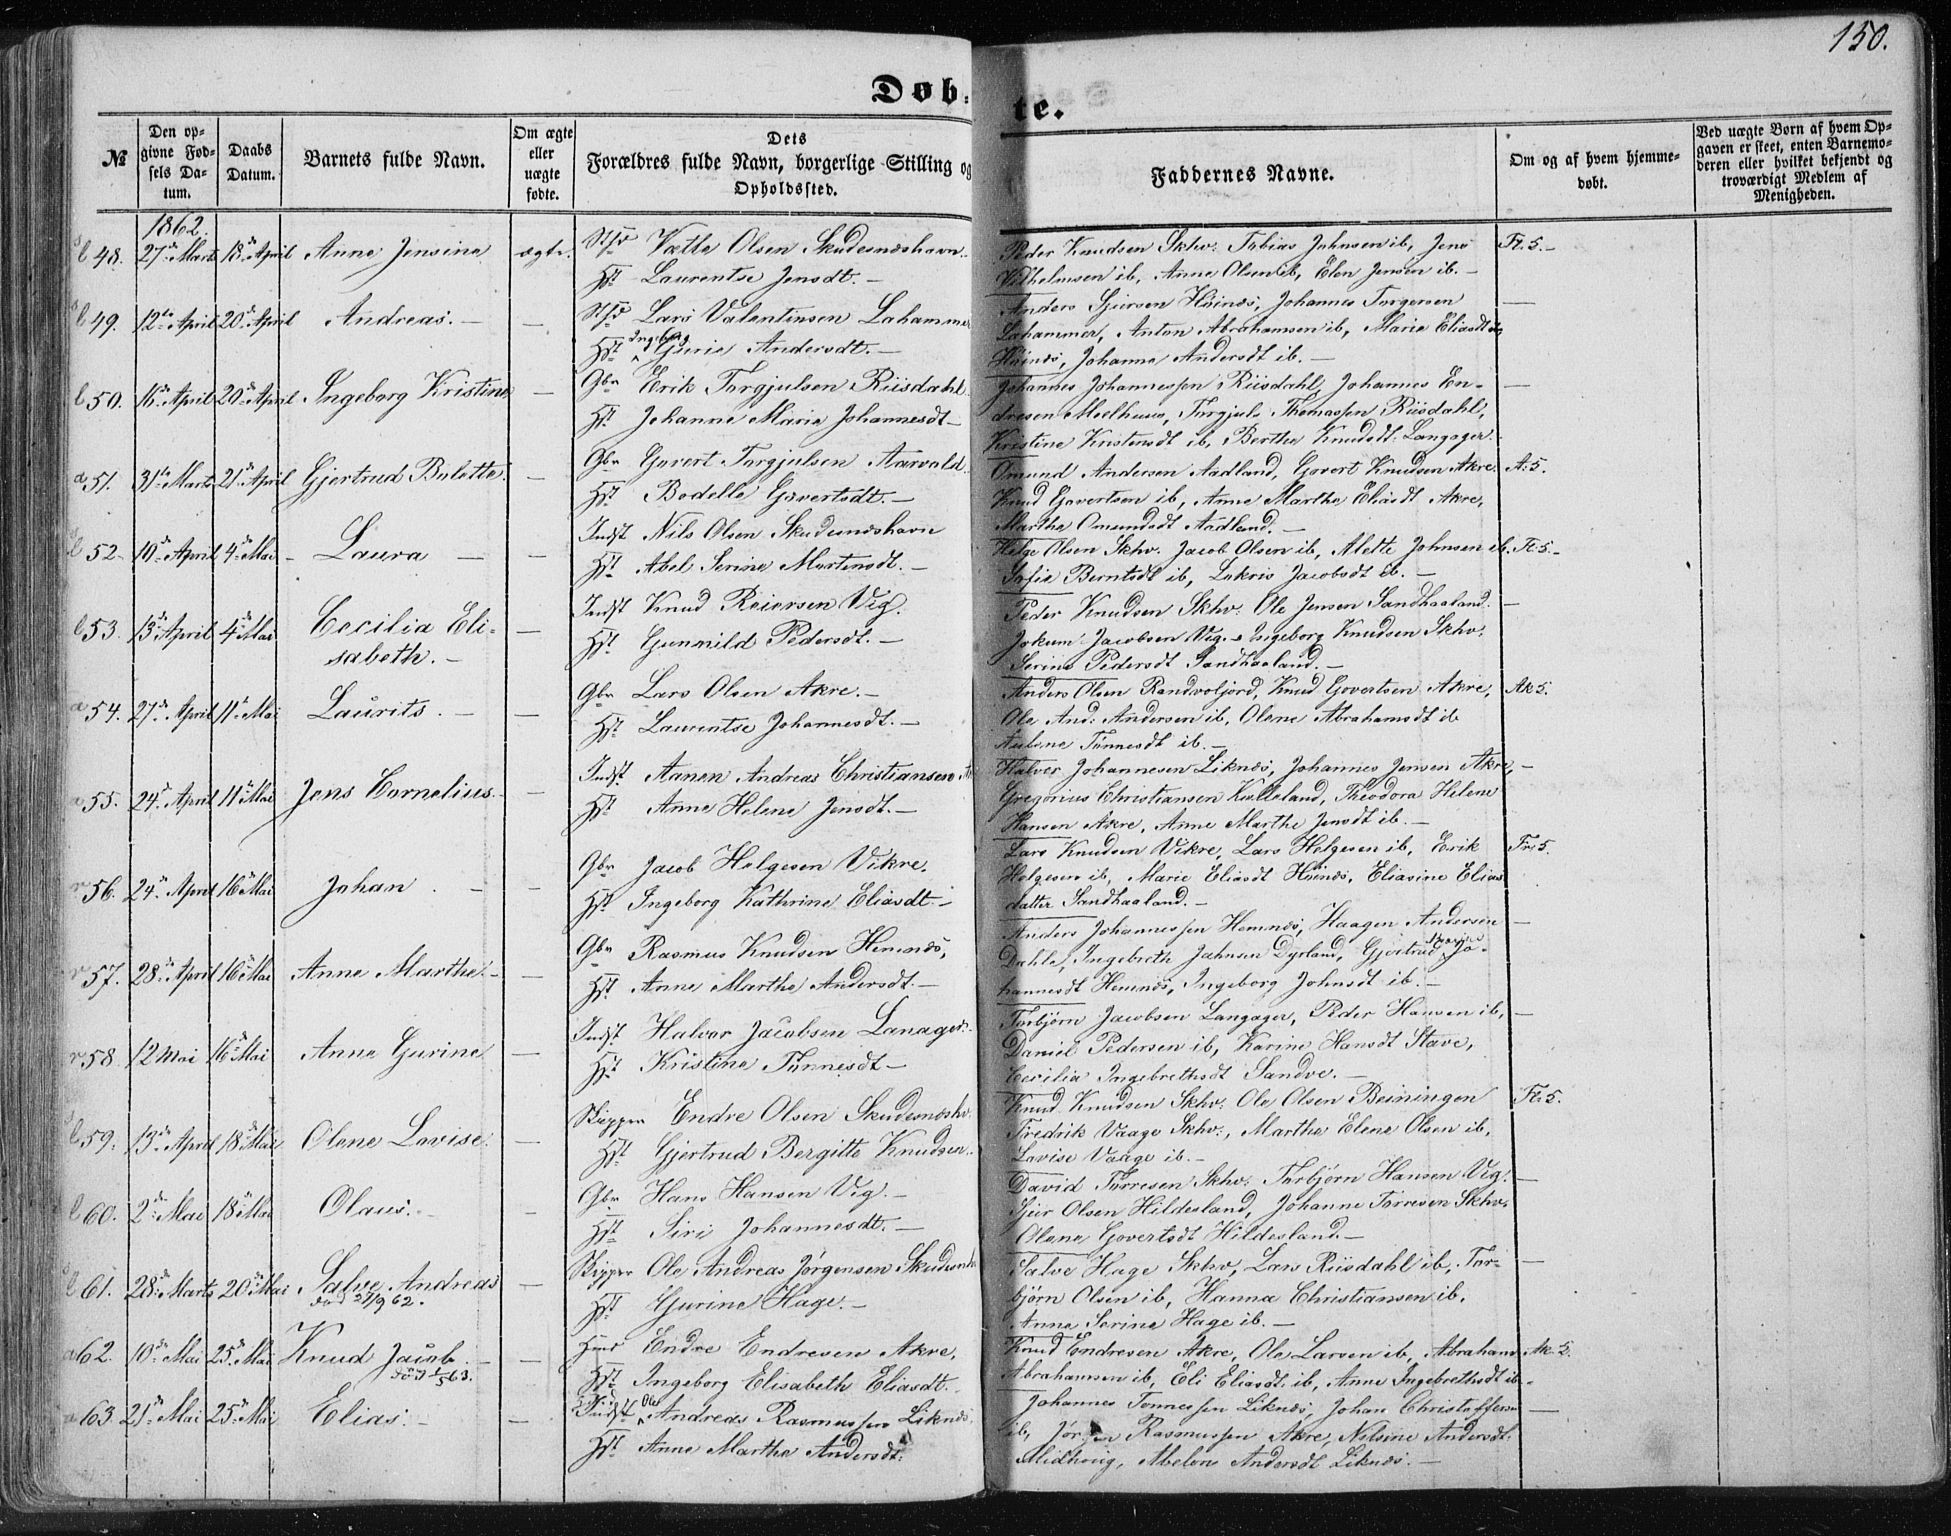 150.
Døb-
te.
№
Den op-
givne Fød-
sels Da-
tum.
Daabs
Datum.
Barnets fulde Navn.
Om ægte
eller
uægte
fødte.
Dets
Forældres fulde Navn, borgerlige Stilling og
Opholdssted.
Faddernes Navne.
Om og af hvem hjemme-
døbt.
Ved uægte Børn af hvem Op-
gaven er skeet, enten Barnemo-
deren eller hvilket bekjendt og
troværdigt Medlem af
Menigheden.
1862.
48. 27de Marts 18de April Anne Jensine ægte.
Vette Olsen Skudesnæshavn.
Hst Laurentse Jensdt. -
Peder Knudsen Skhv. Tobias Johnsen ib, Jens
Vilhelmsen ib, Anne Olsen ib, Elen Jensen ib. -
Ft. 5. -
49. 12te April 20de April Andreas. - -
Lars Valentinsen Lahammer
Hst Ingeborg Gurie Andersdt. -
Anders Sjursen Høinæs, Johannes Torgersen
Lahammer, Anton Abrahamsen ib, Marie Eliasdt
Høinæs, Johanne Andersdt ib. -
-
50. 16de April 20de April Ingeborg Kristine -
Gbr Erik Torgjulsen Riisdahl
Hst Johanne Marie Johannesdt -
Johannes Johannessen Riisdahl, Johannes En-
dresen Meelhuus, Torgjuls Thomassen Riisdahl,
Kristine Knutsendt ib, Berthe Knudsdt. Langager. -
-
51. 31te Marts 21de April Gjertrud Bolette. -
Gbr Govert Torgjulsen Aarvold.
Hst Bodelle Govertsdt. -
Omund Andersen Aadland, Govert Knudsen Akre.
Knud Govertsen ib, Anne Marthe Eliasdt Akre,
Marthe Omundsdt Aadland. -
A. 5.
52. 10de April 4de Mai - Laura - -
Indst Nils Olsen Skudesnæshavn
Hst Abel Serine Mortensdt. -
Helge Olsen Skhv. Jacob Olsen ib, Alette Johnsen ib.
Sofie Berntsdt ib, Lukris Jacobsdt ib. -
Ft. 5. -
53. 13de April 4de Mai Cecilia Eli-
sabeth. - -
Indst Knud Reiersen Vig.
Hst Gunnild Pedersdt. -
Peder Knudsen Skhv. Ole Jensen Sandhaaland.
Jokum Jacobsen Vig. - Ingeborg Knudsen Skhv.
Serine Pedersdt Sandhaaland. -
-
54. 27de April 11te Mai Laurits. - -
Gbr Lars Olsen Akre. -
Hst Laurentse Johannesdt. -
Anders Olsen Rendvoljord, Knud Govertsen Akre,
Ole And. Andersen ib, Olene Abrahamsdt ib
Aulene Tønnesdt ib. -
Ak 5.
55. 24de April 11te Mai Jens Cornelius. -
Indst Aanen Andreas Christiansen
Hst Anne Helene Jensdt. -
Halver Johannesen Liknæs, Johannes Jensen Akre,
Gregorius Christiansen Kulleland, Theodora Helene
Hansen Akre, Anne Marthe Jensdt ib. -
-
56. 24de April 16de Mai Johan. - -
Gbr Jacob Helgesen Vikre.
Hst Ingeborg Kathrine Eliasdt. -
Lars Knudsen Vikre, Lars Helgesen ib, Erik
Helgesen ib, Marie Eliasdt Høinæs, Eliasine Elias-
datter Sandhaaland. -
Fr. 5.
57. 28de April 16de Mai Anne Marthe. - -
Gbr Rasmus Knudsen Hemnæs,
Hst Anne Marthe Andersdt. -
Anders Johannessen Hemnæs, Haagen Andersen
Dahle, Ingebreth Johnsen Dyrland, Gjertrud Jo-
hannesdt Hemnæs, Ingeborg Johnsdt ib. -
-
58. 12 Mai 16de Mai Anne Gurine -
Indst Halvor Jacobsen Lanager. -
Hst Kristine Tønnesdt -
Torbjørn Jacobsen Langager, Peder Hansen ib,
Daniel Pedersen ib, Karine Hansdt Stave,
Cecilia Ingebrethsdt Sandve. -
-
59. 13de April 18de Mai Olene Lovise. -
Skipper Endre Olsen Skudesnæshv.
Hst Gjertrud Bergitte Knudsen.
Knud Knudsen Skhv. Ole Olsen Beiningen
Fredrik Vaage Skhv., Marthe Elene Olsen ib,
Lovise Vaage ib. -
Ft. 5.
60. 2de Mai 18de Mai Olaus. - -
Gbr Hans Hansen Vig. -
Hst Siri Johannesdt. -
David Tørresen Skhv. Torbjørn Hansen Vig.
Sjur Olsen Hildesland, Johanne Tørresen Skhv.
Olene Govertsdt Hildesland. -
-
61. 28de Marts 20de Mai Salve Andreas -
død 27/9 62.
Skipper Ole Andreas Jørgensen Skudesnh
Hst Gurine Hage. -
Salve Hage Skhv, Lars Riisdahl ib, Tor-
bjørn Olsen ib, Hanna Christiansen ib,
Anne Serine Hage ib. -
-
62. 10de Mai 25de Mai Knud Jacob. -
død 1/5 63.
Endre Endresen Akre,
Hst Ingeborg Elisabeth Eliasdt.
Knud Endresen Akre, Ole Larsen ib, Abraham
Abrahamsen ib, Eli Eliasdt. ib, Anne Ingebrethsdt ib. -
Ak. 5.
63. 21de Mai 25de Mai Elias. - -
Indst Ole Andreas Rasmussen Liknæs.
Hst Anne Marthe Andersdt.
Johannes Tønnessen Liknæs, Johan Christoffersen
ib, Jørgen Rasmussen Akre, Nilsine Andersdt.
Midhoug, Abelone Andersdt Liknæs. -
-